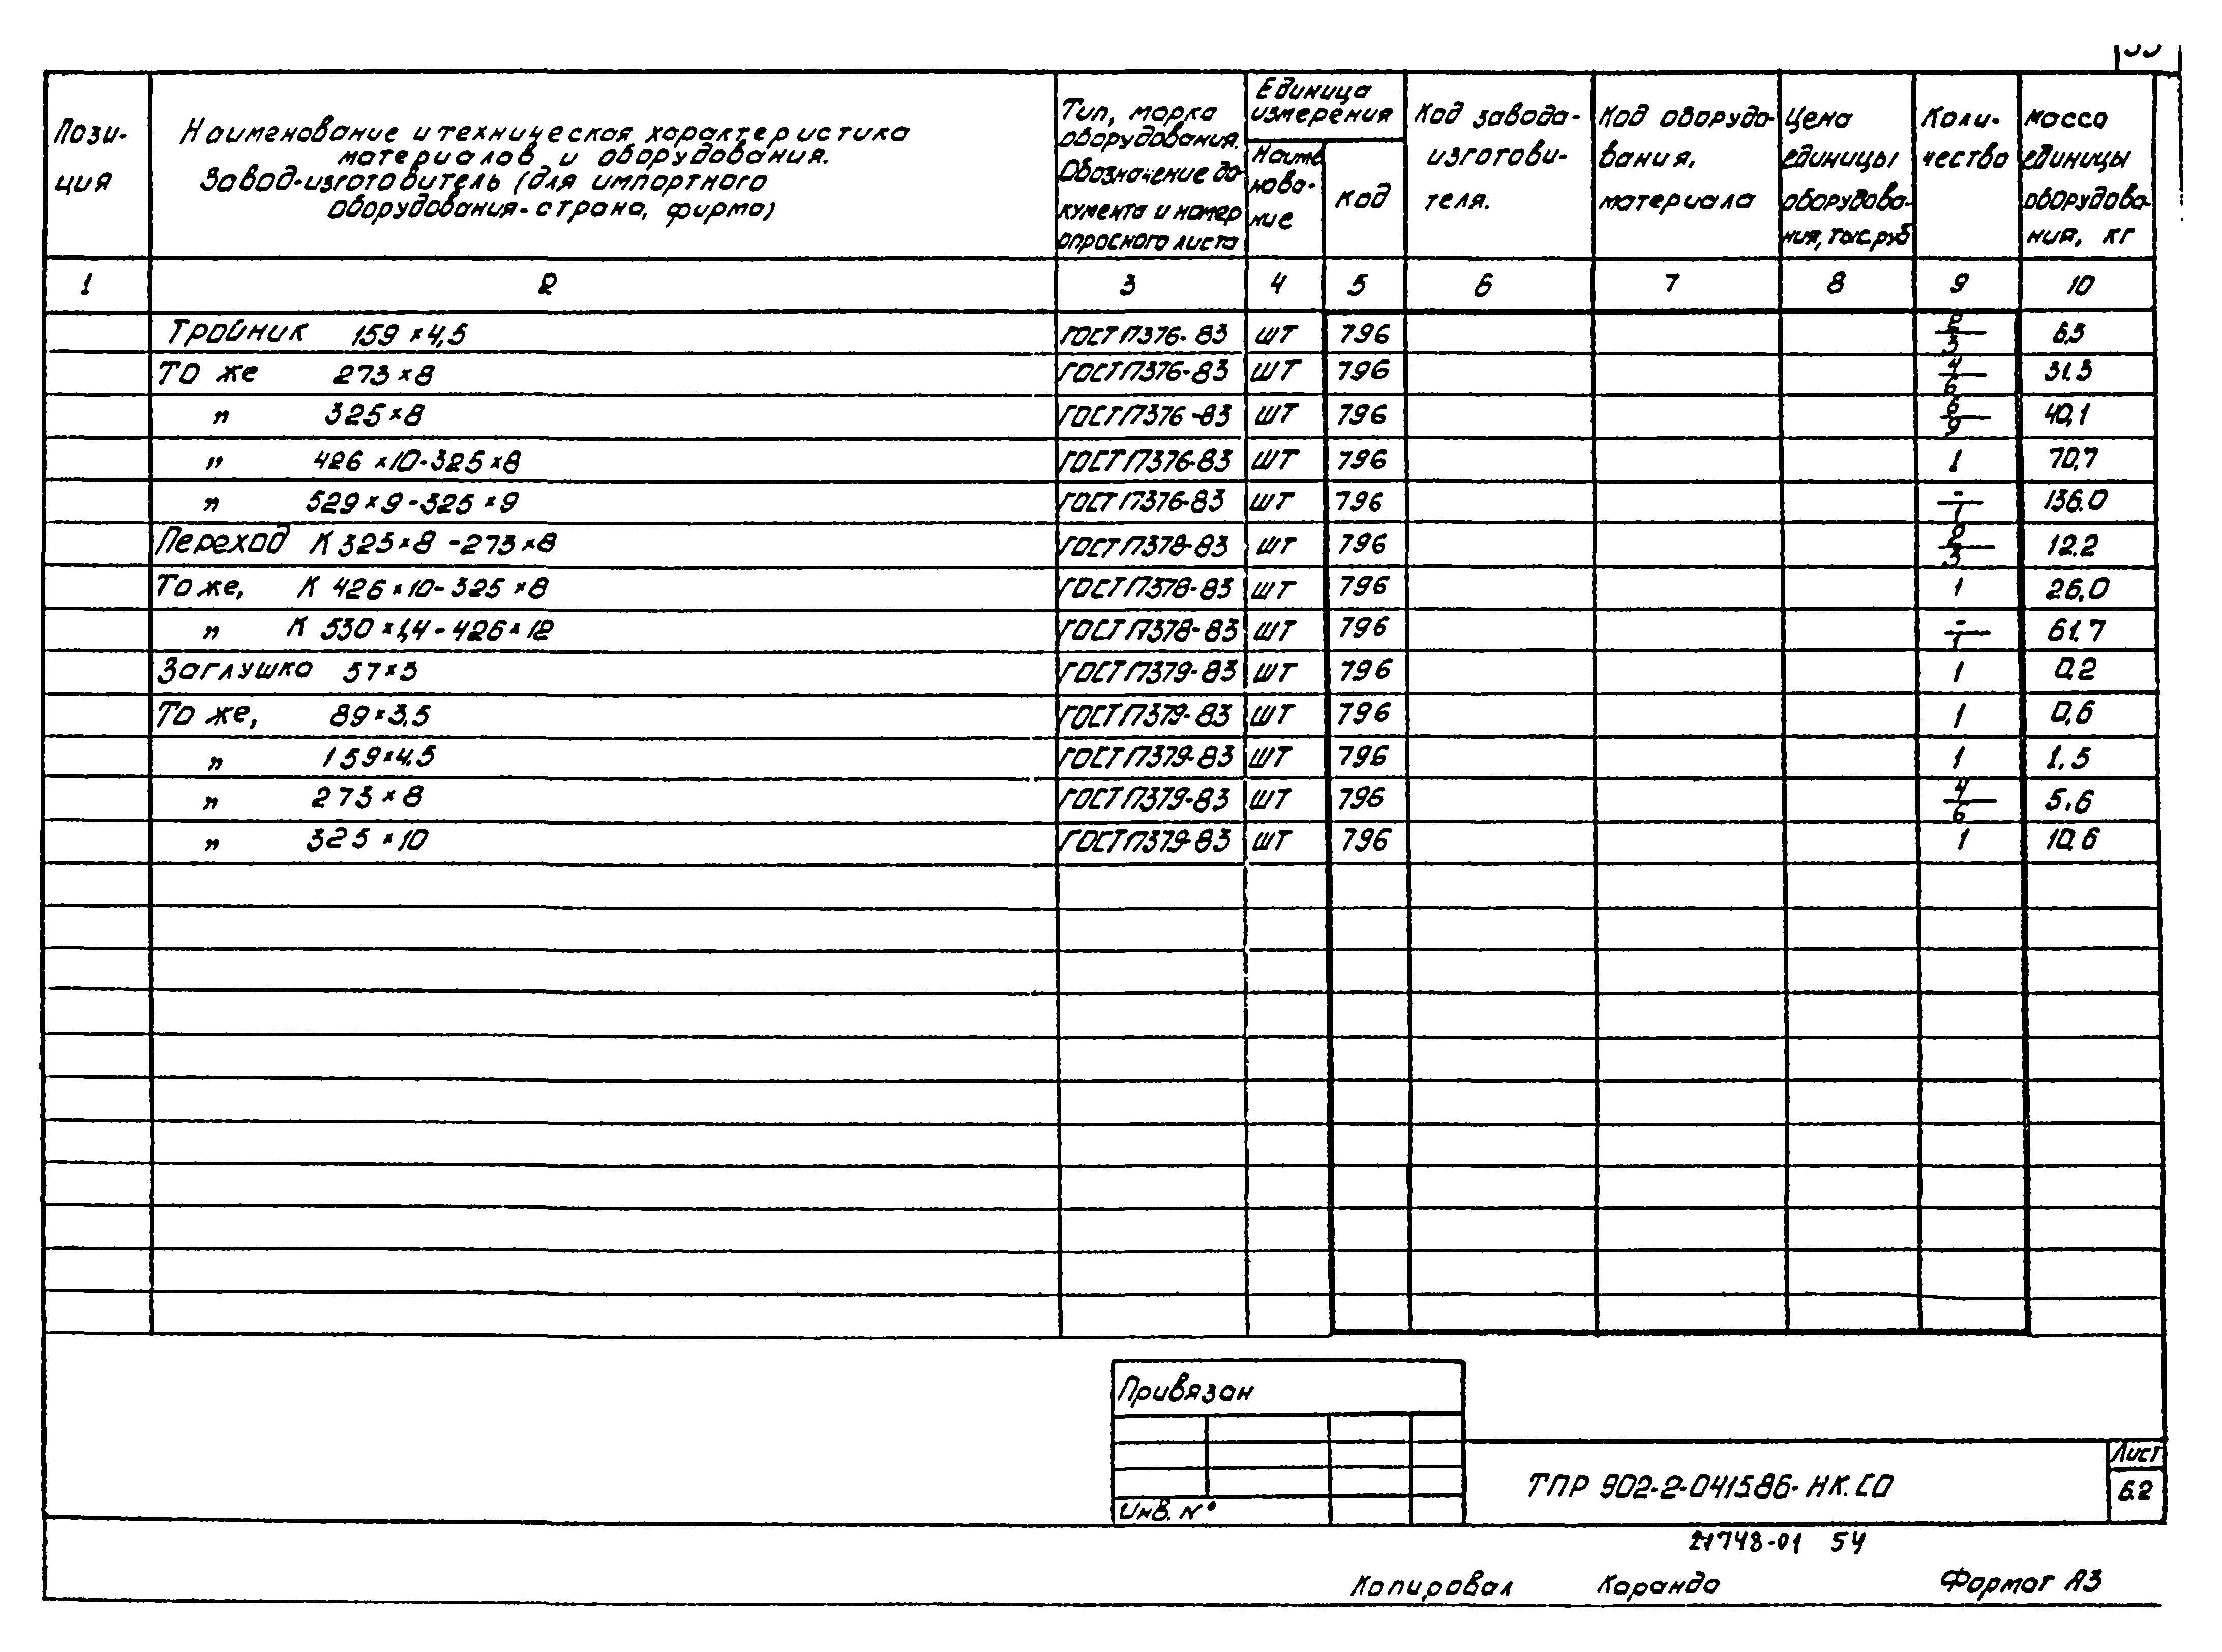 Пози-
ция
Наименование и техническая характеристика
материалов и оборудования.
Завод-изготовитель (для импортного
оборудования-страна, фирма)
Тип, марка
оборудования.
Обозначение до-
кумента и номер
опросного листа
Единица
измерения
Наиме
нова-
ние
код
Код завода-
изготови-
теля.
Код оборудо-
вания,
материала
Цена
единицы
оборудова-
ния, тыс.руб
Коли-
чество
масса
единицы
оборудова-
ния, кг
1 2 3 4 5 6 7 8 9 10
Тройник 159×4,5 ГОСТ 17376-83 шт 796 2/3 6.5
То же 273×8 ГОСТ 17376-83 шт 796 4/6 31.3
" 325×8 ГОСТ 17376-83 шт 796 6/9 40,1
" 426×10-325×8 ГОСТ 17376-83 шт 796 1 70,7
" 529×9-325×9 ГОСТ 17376-83 шт 796 -/1 136.0
Переход К 325×8-273×8 ГОСТ 17378-83 шт 796 2/3 12.2
То же, К 426×10-325×8 ГОСТ 17378-83 шт 796 1 26,0
" К 530×1,4-426×12 ГОСТ 17378-83 шт 796 -/1 61.7
Заглушка 57×3 ГОСТ 17379-83 шт 796 1 0,2
То же, 89×3,5 ГОСТ 17379-83 шт 796 1 0,6
" 159×4,5 ГОСТ 17379-83 шт 796 1 1,5
" 273×8 ГОСТ 17379-83 шт 796 4/6 5,6
" 325×10 ГОСТ 17379-83 шт 796 1 10,6
Привязан
Инв. №
ТПР 902-2-0415.86-НК.СО
Лист
6.2
21748-01 54
Копировал Карандо Формат А3